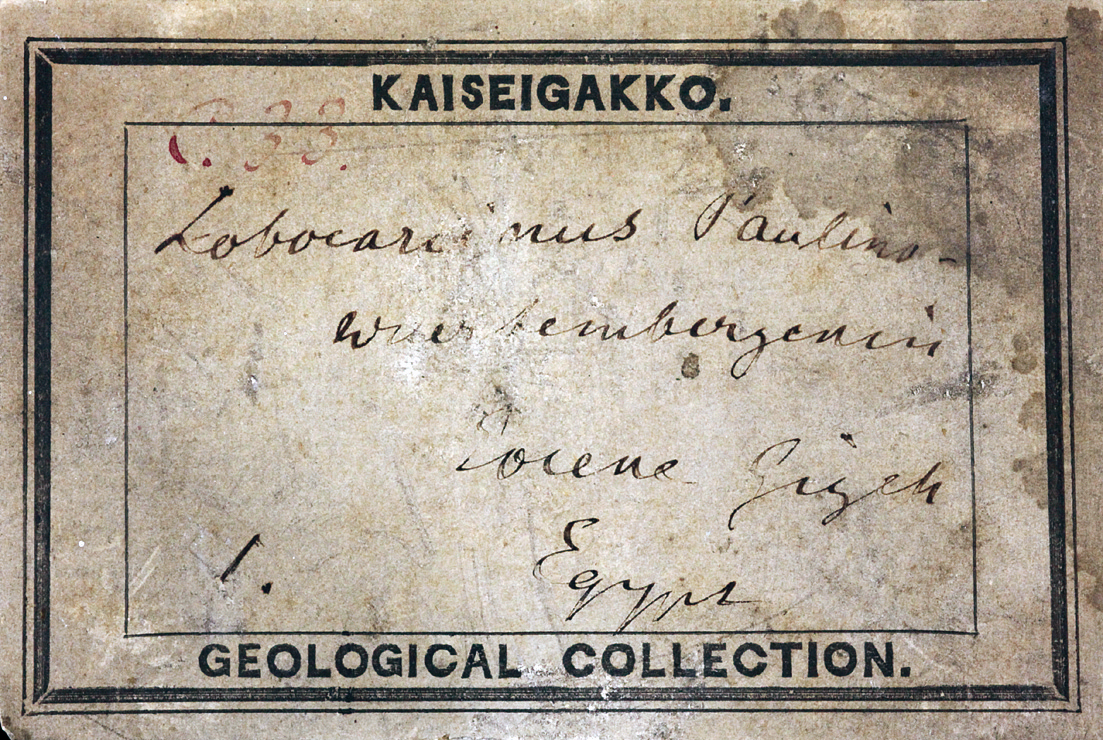 KAISEIGAKKO.
C. 33.
Lobocarcinus Paulino-
wuertembergensis
Eocene Gizeh
1. Egypt
GEOLOGICAL COLLECTION.